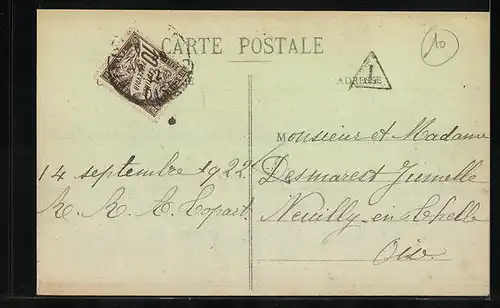 10
CARTE POSTALE
ADRESSE
Monsieur et Madame
14 septembre 1922
Desmarest Jumelle
R. R. A. Copart.
Neuilly-en-Thelle
Oise.